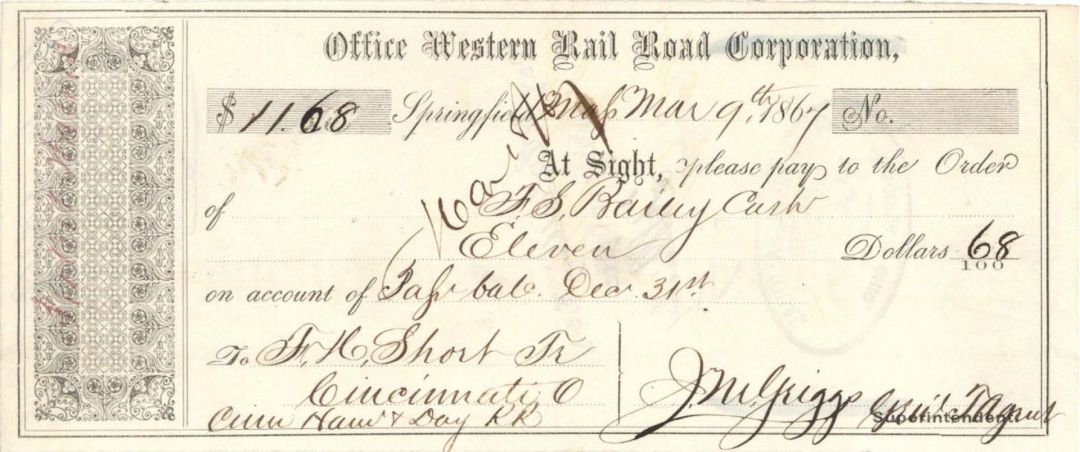 Office Western Rail Road Corporation,
$ 11.68 Springfield Mass Mar 9th, 1867 No.
At Sight, please pay to the Order
of F. S. Bailey Cashr
Eleven Dollars 68/100
on account of Passr bal. Dec 31st
To F. H. Short Tr
Cincinnati O
Cinn Ham & Day RR
J. M. Griggs Genl T Agent
Superintendent.